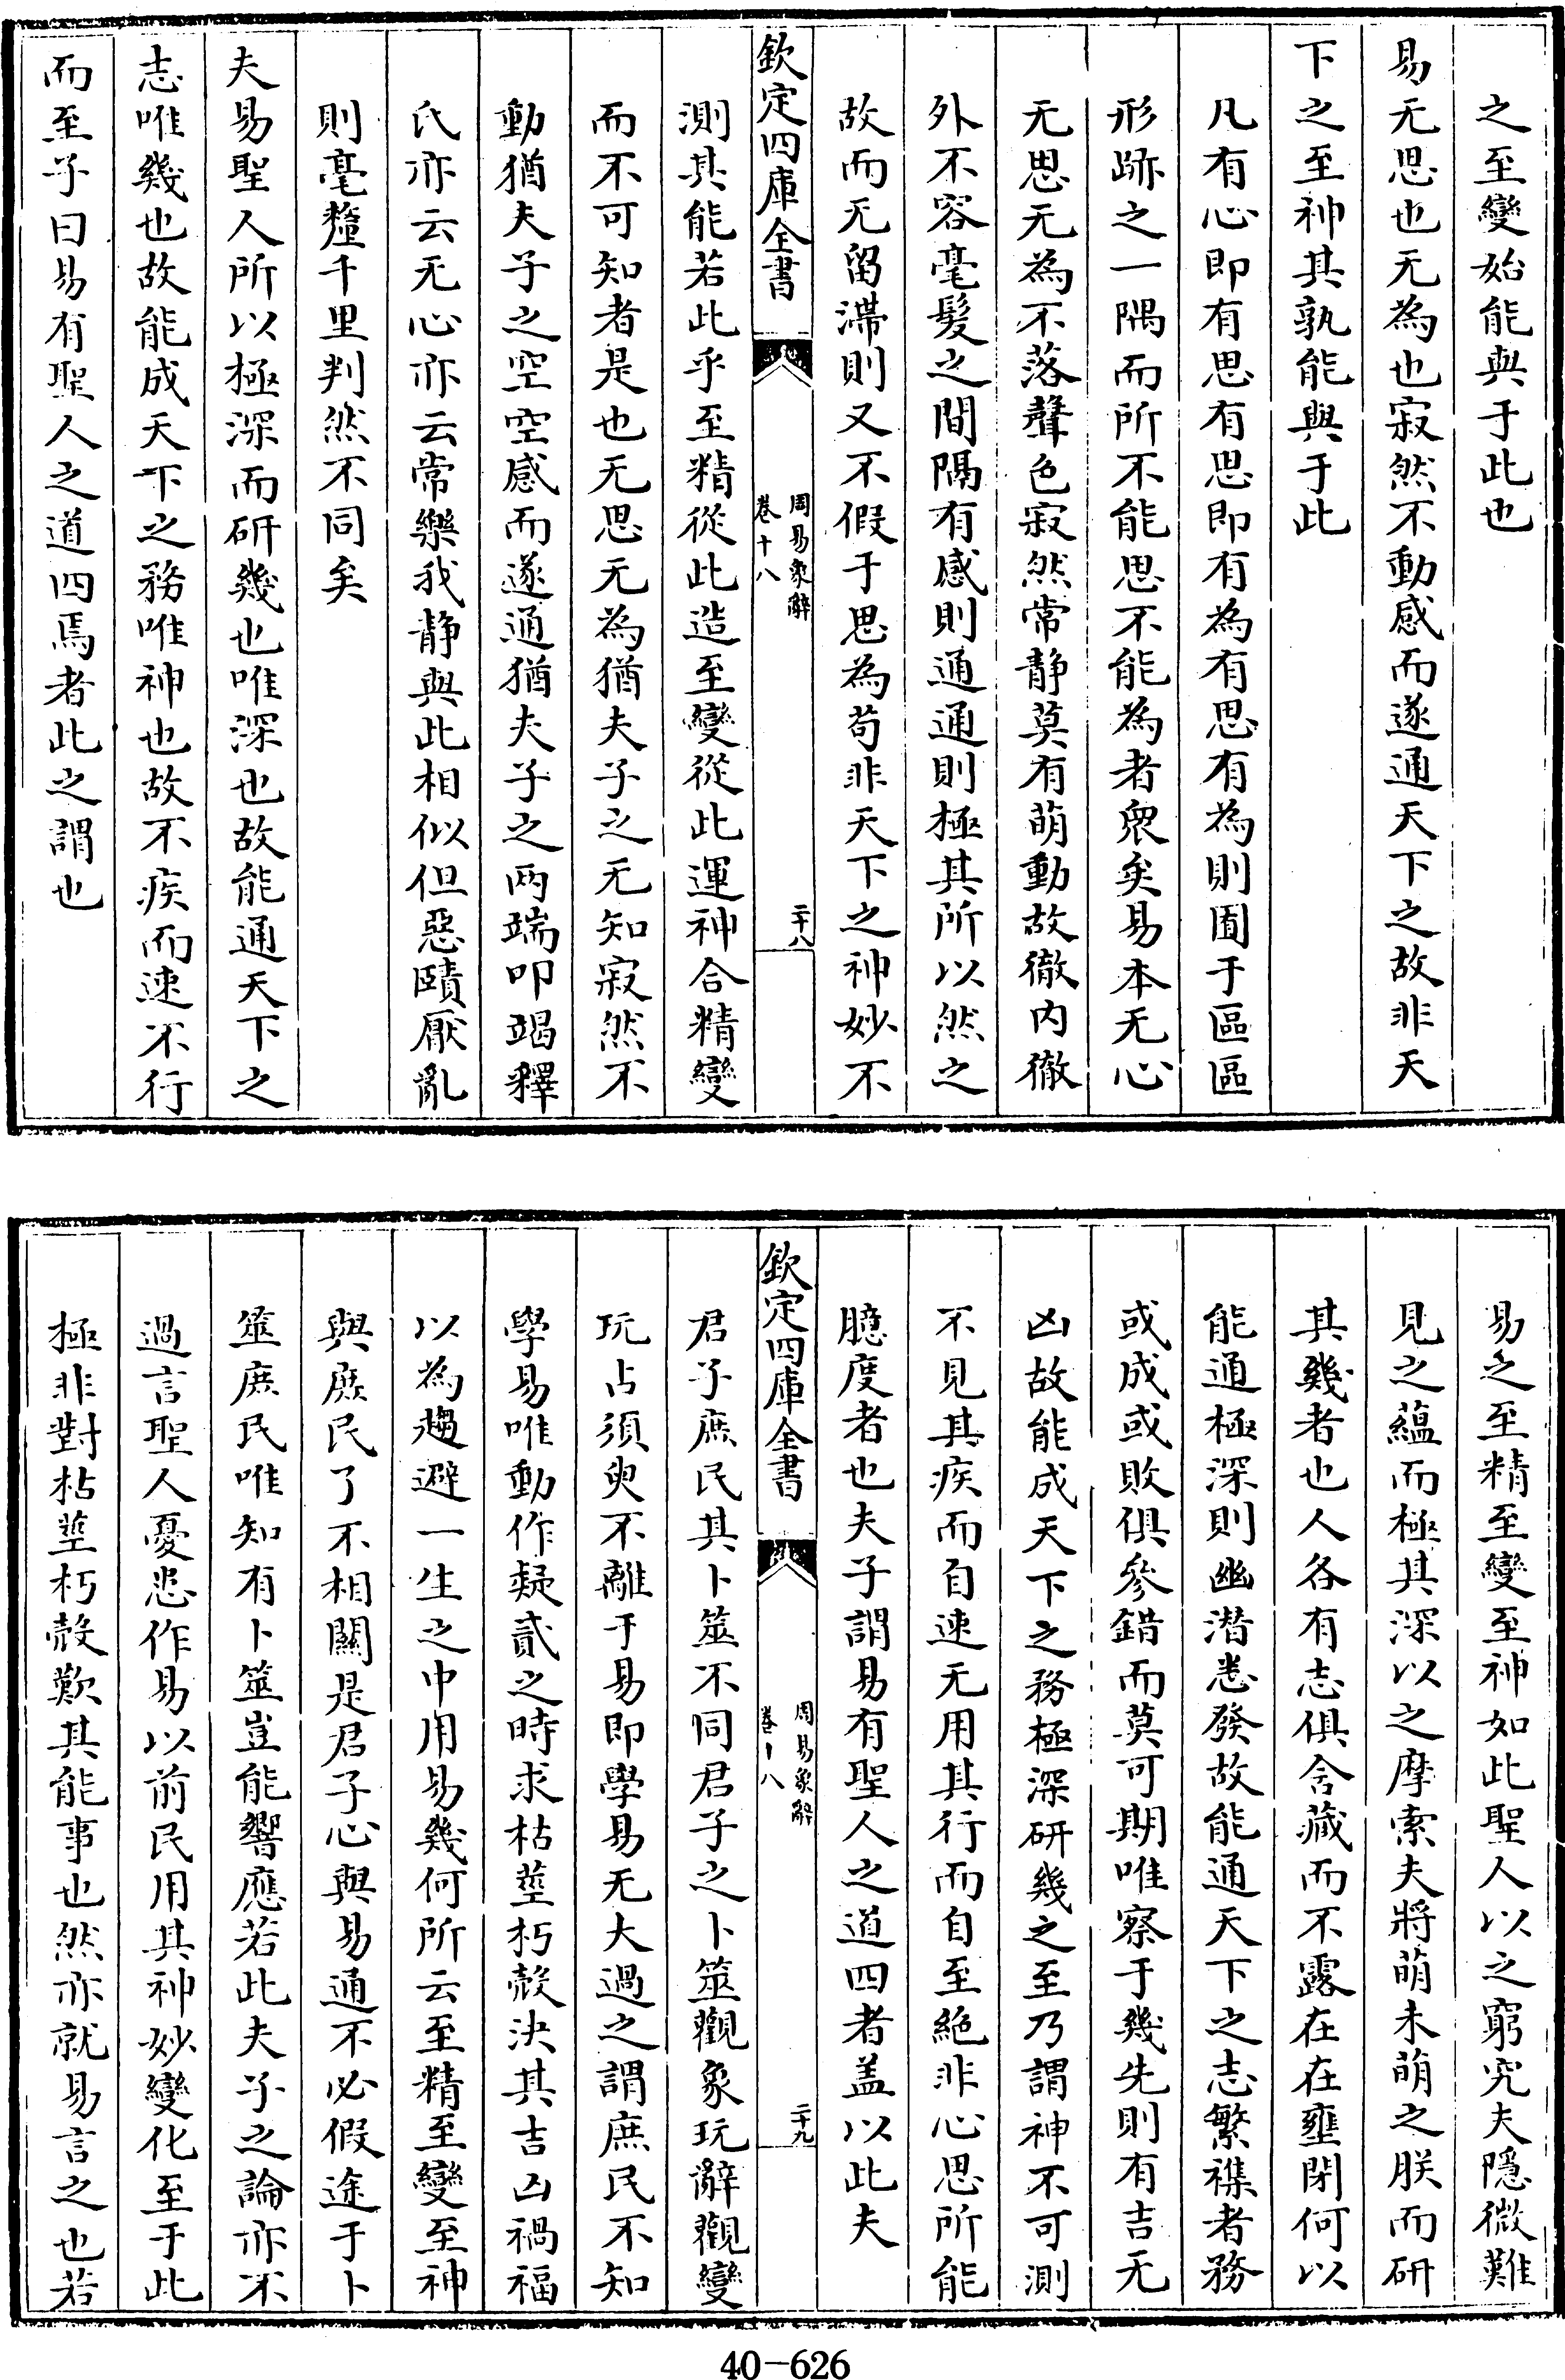 之至變始能與于此也
易无思也无為也寂然不動感而遂通天下之故非天
下之至神其孰能與于此
凡有心即有思有思即有為有思有為則囿于區區
形跡之一隅而所不能思不能為者衆矣易本无心
无思无為不落聲色寂然常靜莫有萌動故徹内徹
外不容毫髮之間隔有感則通通則極其所以然之
故而无留滯則又不假于思為苟非天下之神妙不
欽定四庫全書
周易象辭
卷十八
二十八
測其能若此乎至精從此造至變從此運神合精變
而不可知者是也无思无為猶夫子之无知寂然不
動猶夫子之空空感而遂通猶夫子之兩端叩竭釋
氏亦云无心亦云常樂我静與此相似但惡賾厭亂
則毫釐千里判然不同矣
夫易聖人所以極深而研幾也唯深也故能通天下之
志唯幾也故能成天下之務唯神也故不疾而速不行
而至子曰易有聖人之道四焉者此之謂也
易之至精至變至神如此聖人以之窮究夫隱微難
見之蘊而極其深以之摩索夫將萌未萌之朕而研
其幾者也人各有志俱含藏而不露在在壅閉何以
能通極深則幽潛悉發故能通天下之志繁襍者務
或成或敗俱參錯而莫可期唯察于幾先則有吉无
凶故能成天下之務極深研幾之至乃謂神不可測
不見其疾而自速无用其行而自至絶非心思所能
臆度者也夫子謂易有聖人之道四者盖以此夫
欽定四庫全書
周易象辭
卷十八
二十九
君子庶民其卜筮不同君子之卜筮觀象玩辭觀變
玩占須臾不離于易即學易无大過之謂庶民不知
學易唯動作疑貳之時求枯莖朽殼決其吉凶禍福
以為趨避一生之中用易幾何所云至精至變至神
與庶民了不相關是君子心與易通不必假途于卜
筮庶民唯知有卜筮豈能響應若此夫子之論亦不
過言聖人憂患作易以前民用其神妙變化至于此
極非對枯莖朽殼歎其能事也然亦就易言之也若
40-626